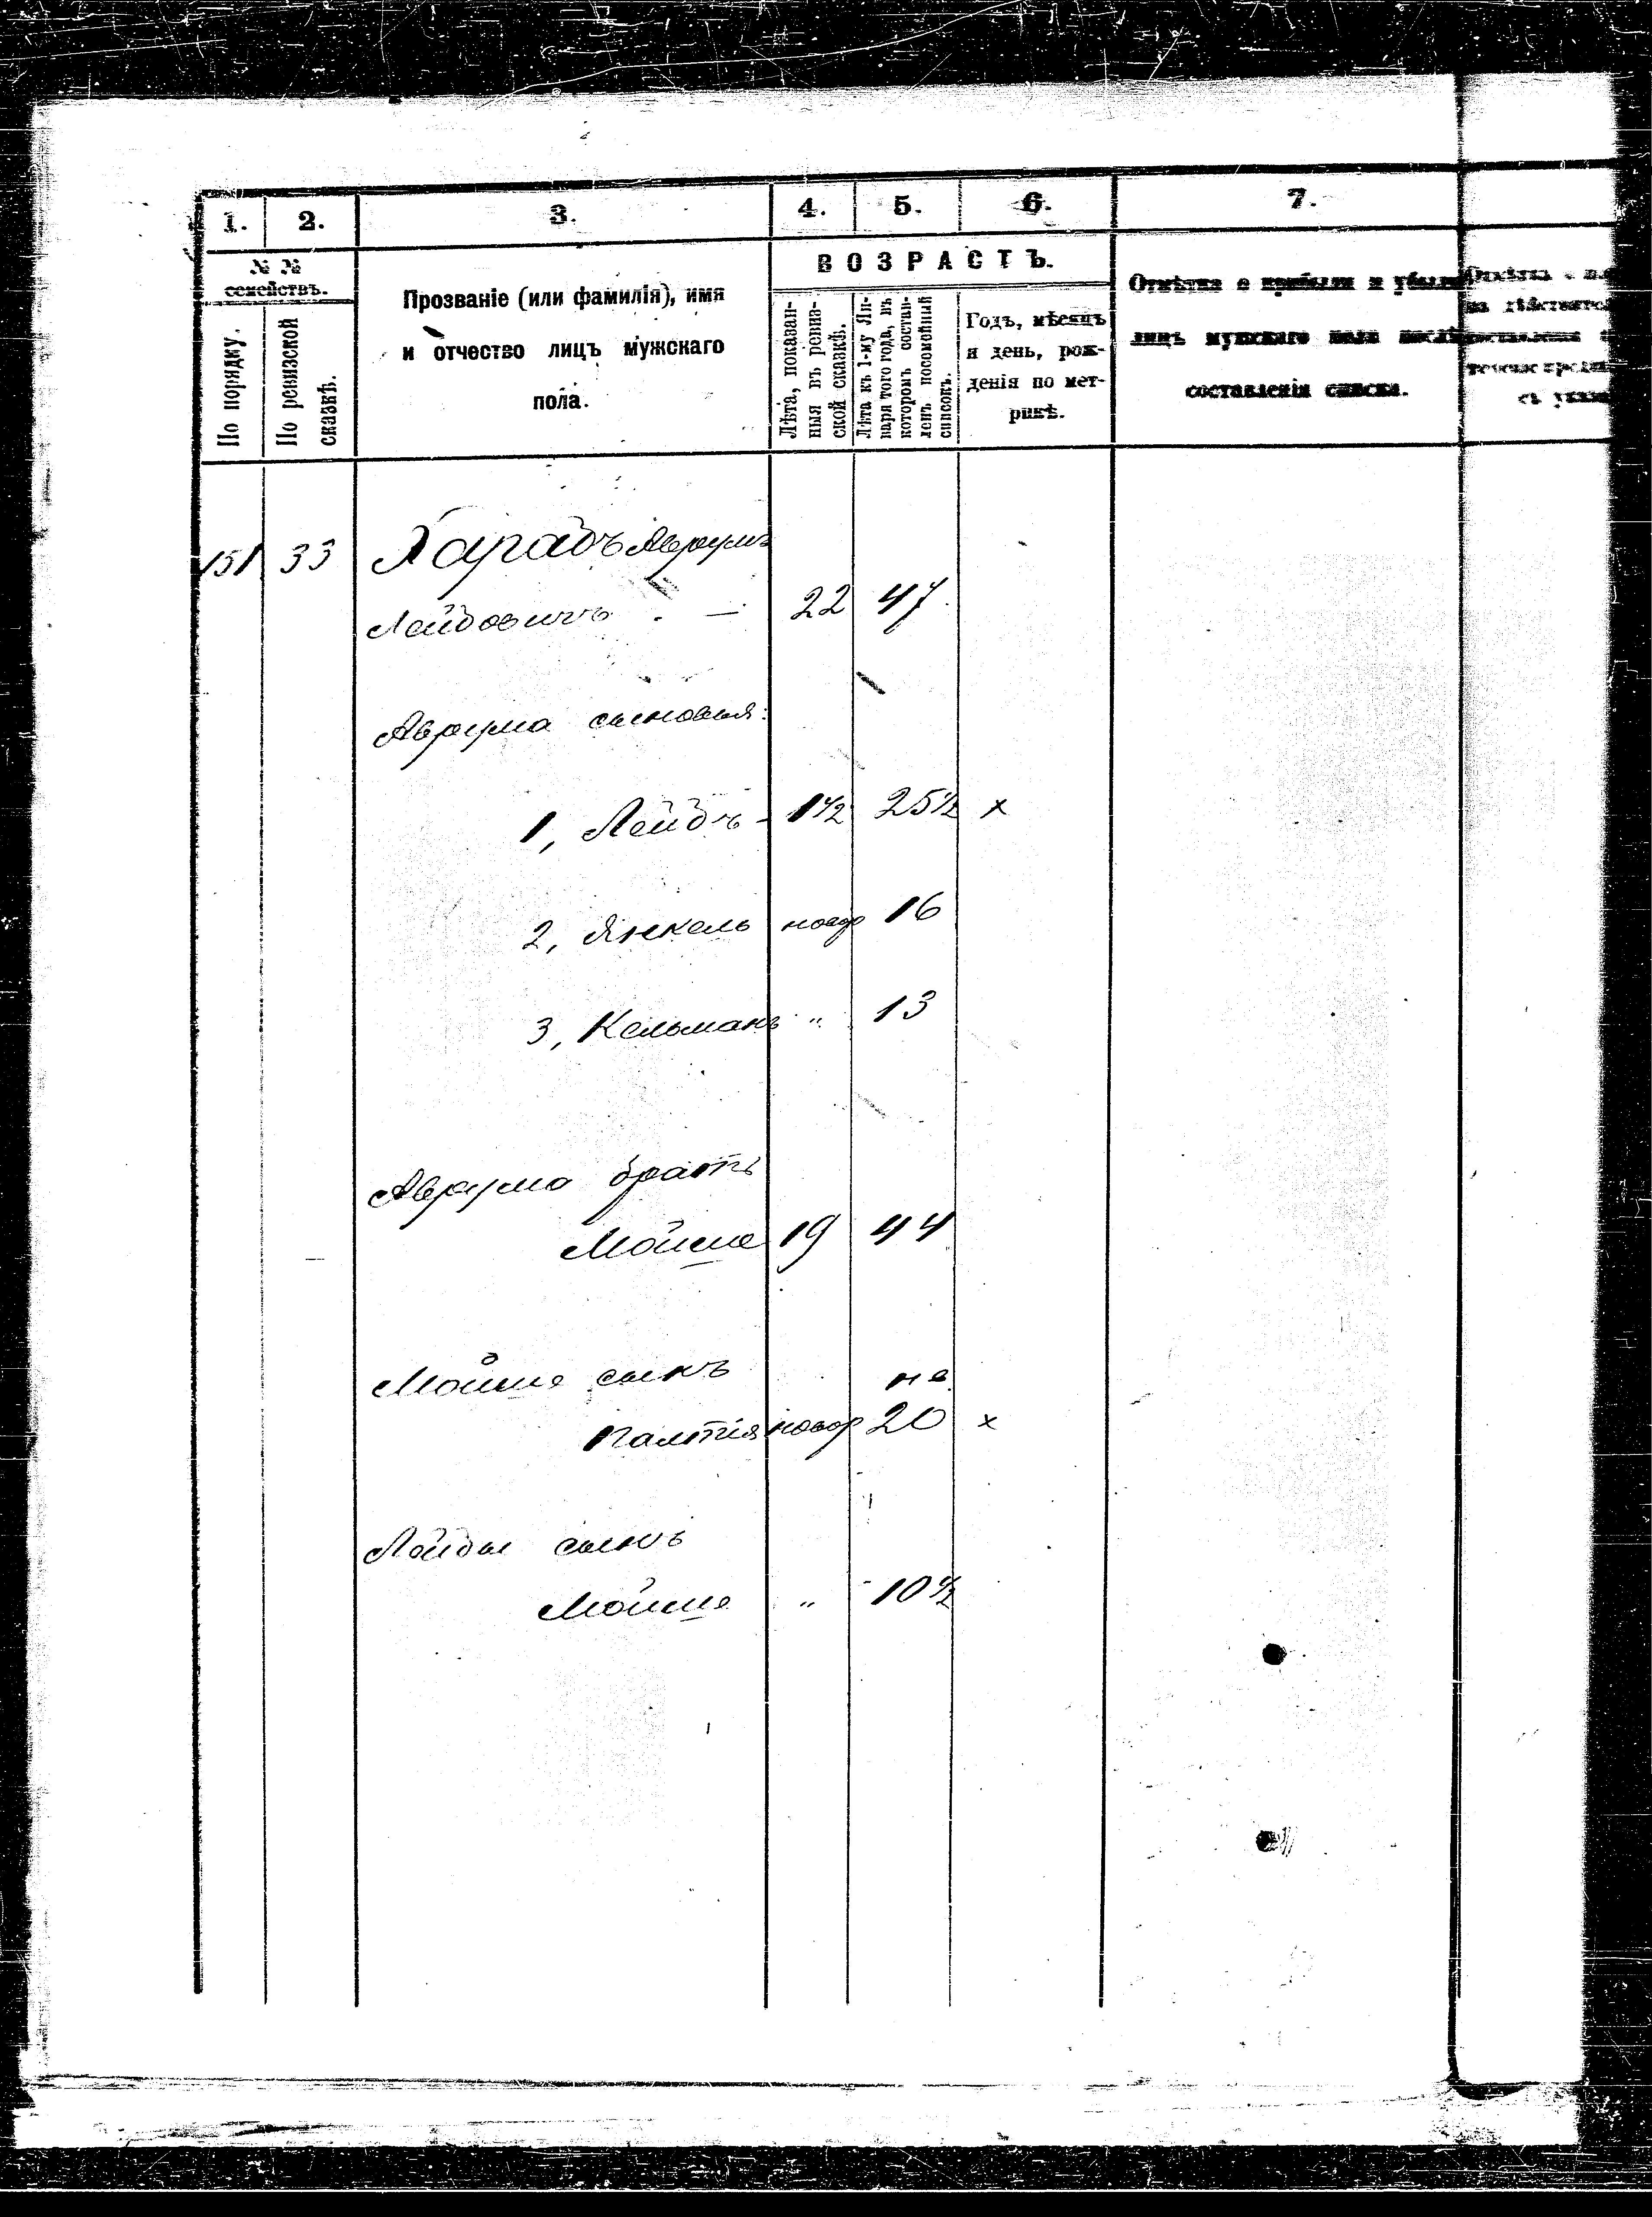 1. 2. 3. 4. 5. 6. 7.
№ № семействъ.
По порядку.
По ревизской сказкѣ.
Прозваніе (или фамилія), имя
и отчество лицъ мужскаго
пола.
ВОЗРАСТЪ.
Лѣта, показан-
ныя въ ревиз-
ской сказкѣ.
Лѣта къ 1-му Ян-
варя того года, въ
которомъ состав-
ленъ посемейный
списокъ.
Годъ, мѣсяцъ
и день, рож-
денія по мет-
рикѣ.
Отмѣтка о прибыли и убыли
лицъ мужскаго пола послѣ
составленія списка.
151 33 Аврумъ
Лейбовичъ - 22 47
Аврума сыновья:
1, Лейбъ - 1 1/2 25 1/2 x
2, Янкель новор 16
3, Кельманъ " 13
Аврума братъ
Мойше 19 44
Мойше сынъ не
новор 20 x
Лейбы сынъ
Мойше " 10 1/2